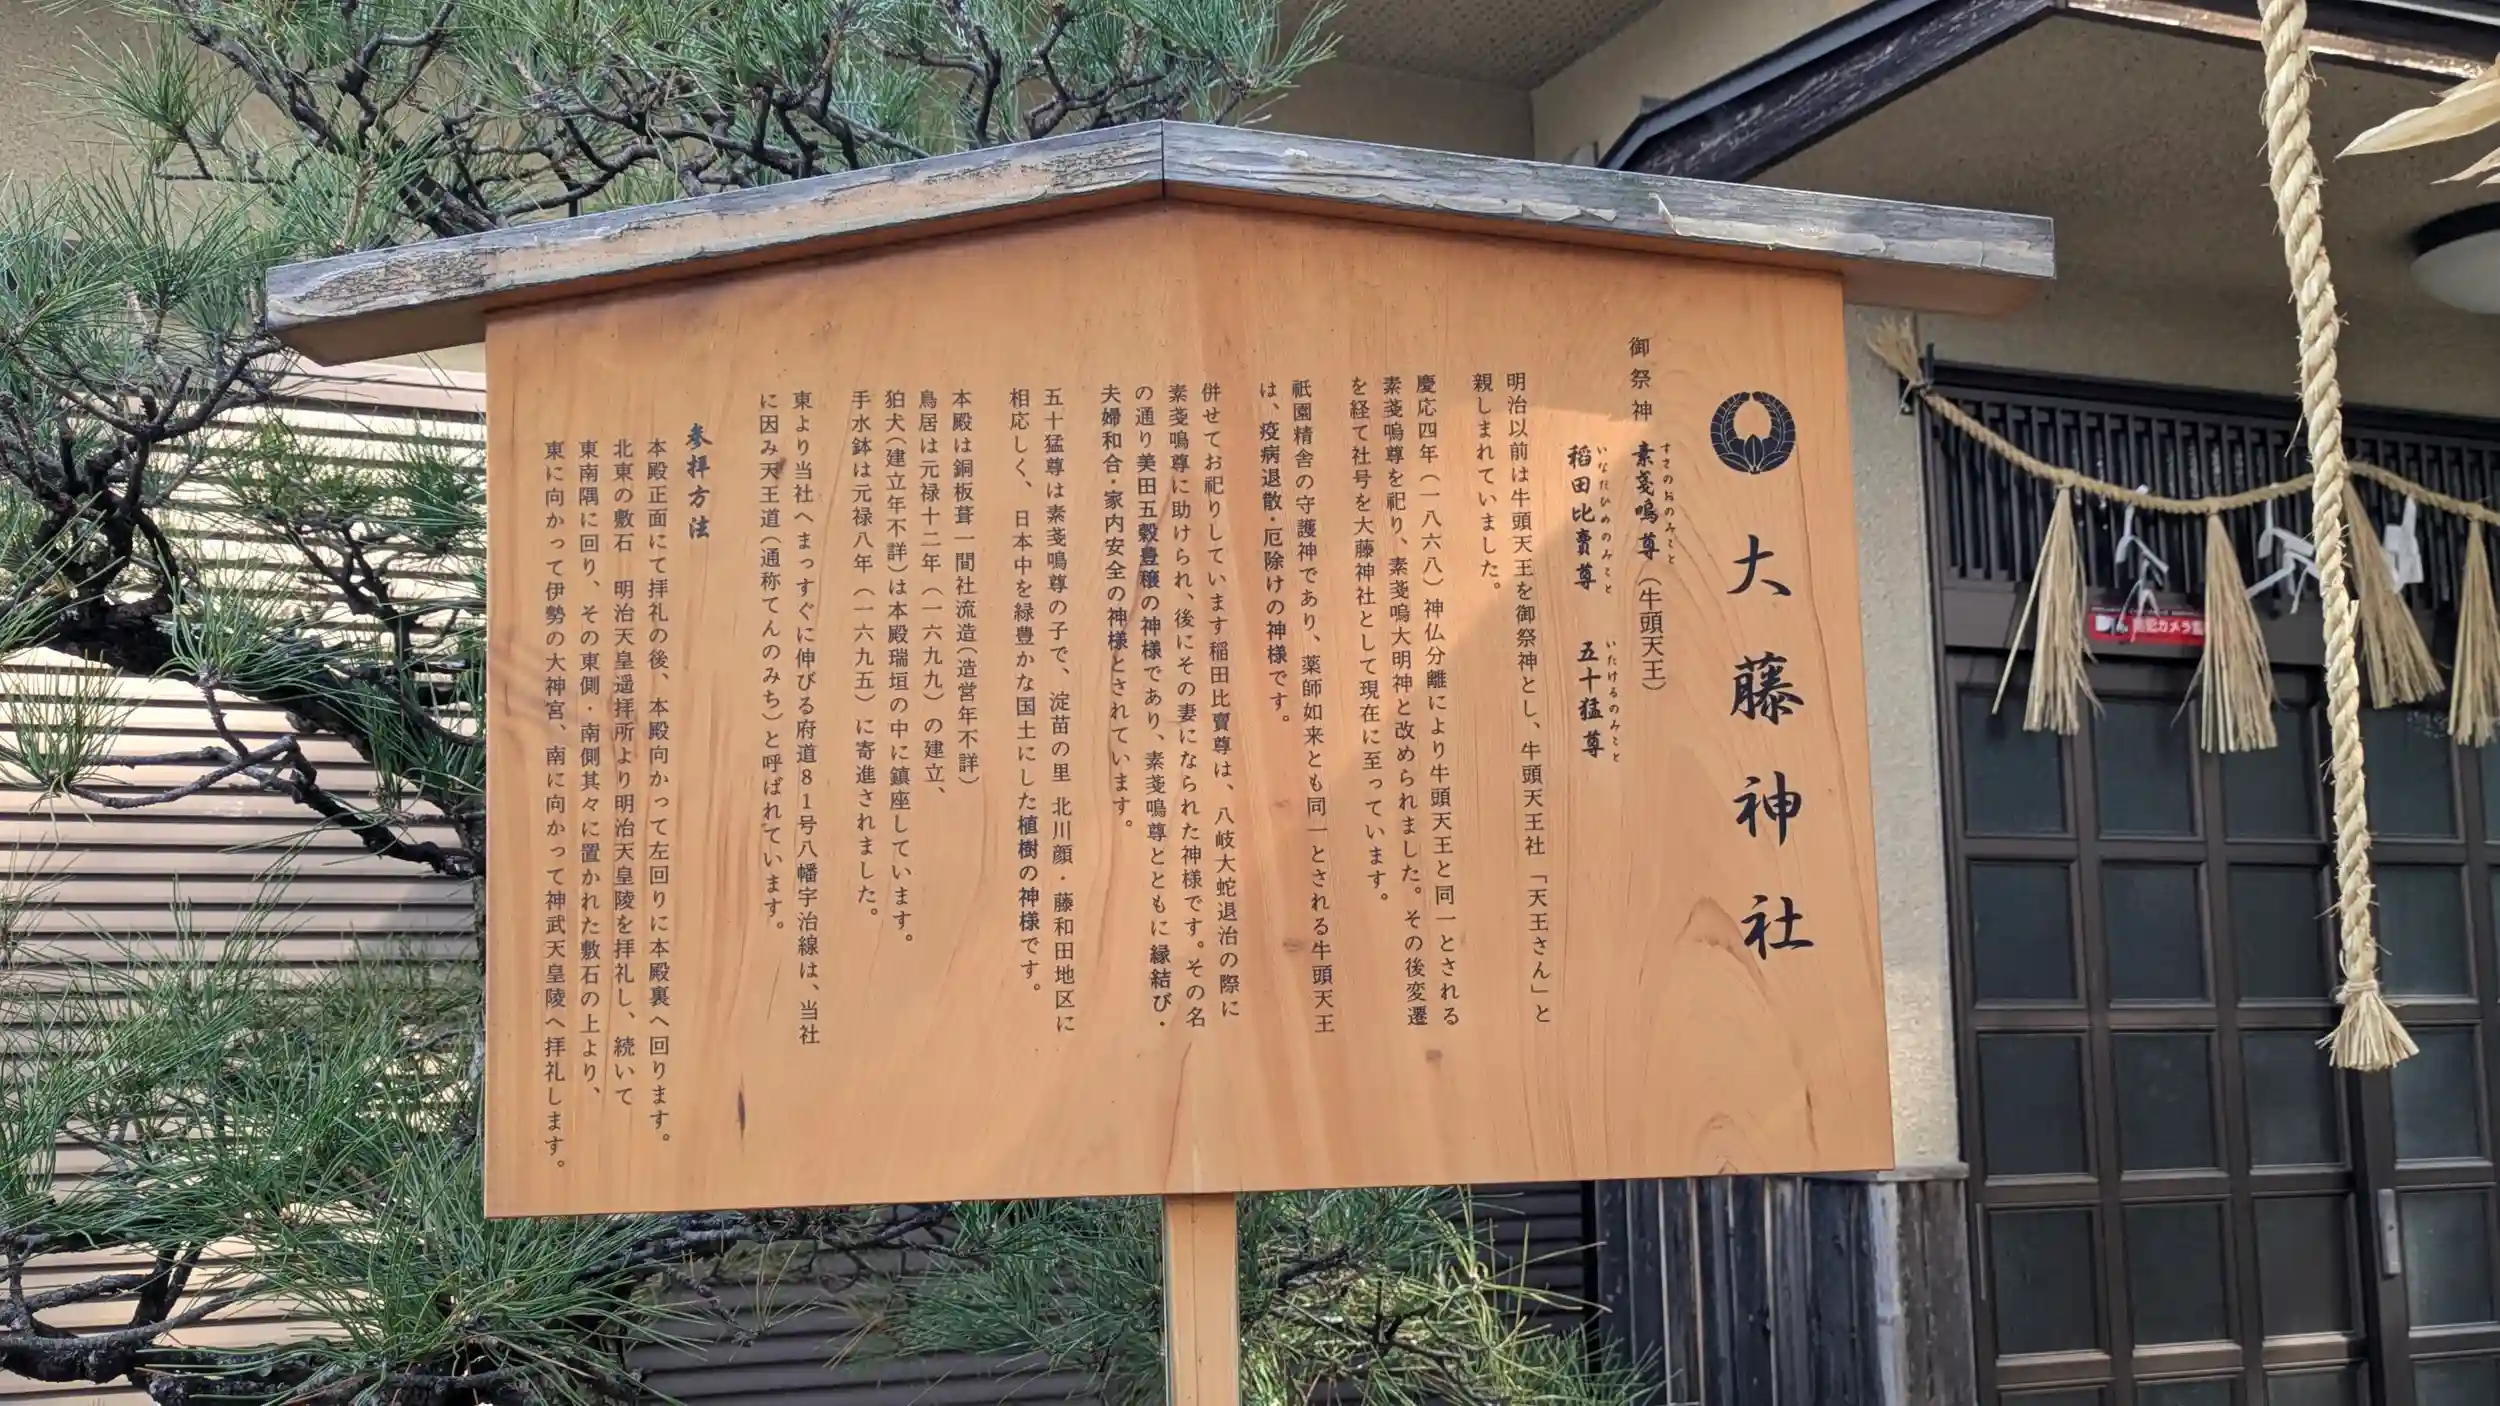 大藤神社
御祭神 素戔嗚尊（牛頭天王）
すさのおのみこと
稲田比賣尊 五十猛尊
いなだひめのみこと いたけるのみこと
明治以前は牛頭天王を御祭神とし、牛頭天王社「天王さん」と
親しまれていました。
慶応四年（一八六八）神仏分離により牛頭天王と同一とされる
素戔嗚尊を祀り、素戔嗚大明神と改められました。その後変遷
を経て社号を大藤神社として現在に至っています。
祇園精舎の守護神であり、薬師如来とも同一とされる牛頭天王
は、疫病退散・厄除けの神様です。
併せてお祀りしています稲田比賣尊は、八岐大蛇退治の際に
素戔嗚尊に助けられ、後にその妻になられた神様です。その名
の通り美田五穀豊穣の神様であり、素戔嗚尊とともに縁結び・
夫婦和合・家内安全の神様とされています。
五十猛尊は素戔嗚尊の子で、淀苗の里 北川顔・藤和田地区に
相応しく、日本中を緑豊かな国土にした植樹の神様です。
本殿は銅板葺一間社流造（造営年不詳）
鳥居は元禄十二年（一六九九）の建立、
狛犬（建立年不詳）は本殿瑞垣の中に鎮座しています。
手水鉢は元禄八年（一六九五）に寄進されました。
東より当社へまっすぐに伸びる府道８１号八幡宇治線は、当社
に因み天王道（通称てんのみち）と呼ばれています。
参拝方法
本殿正面にて拝礼の後、本殿向かって左回りに本殿裏へ回ります。
北東の敷石 明治天皇遥拝所より明治天皇陵を拝礼し、続いて
東南隅に回り、その東側・南側其々に置かれた敷石の上より、
東に向かって伊勢の大神宮、南に向かって神武天皇陵へ拝礼します。